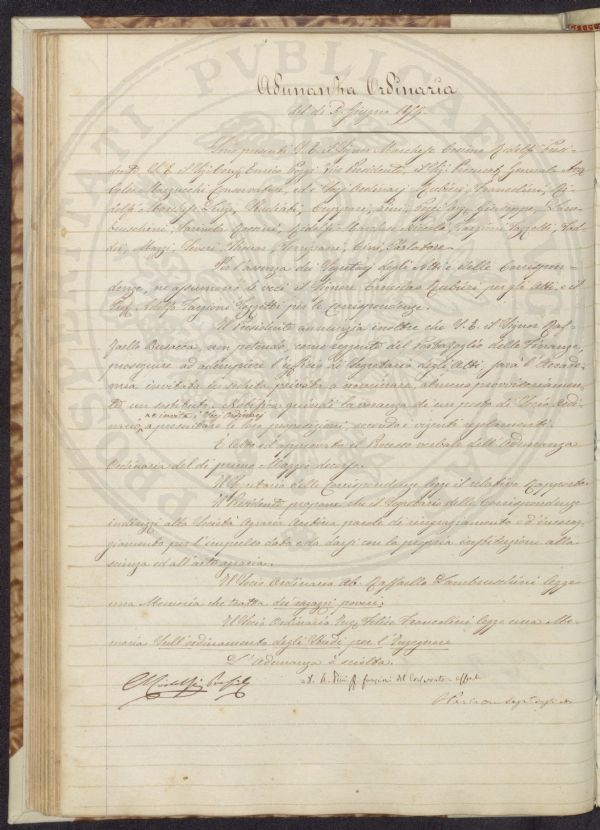 Adunanza Ordinaria
del dì 5 Giugno 1859.
Sono presenti S. E. il Signor Marchese Cosimo Ridolfi Presi-
dente, S. E. il Sig. Cons. Enrico Poggi Vice Presidente, il Sig. Procurat. Generale
Celso Marzucchi Conservatore, ed i Sigg. Ordinarj Rubieri, Francolini, Ri-
dolfi Marchese Luigi, Studiati, Cuppari, Cini, Poggi Avv. Giuseppe, Lam-
bruschini, Vannuccini, Ridolfi Marchese Niccolò, Targioni Tozzetti, Tad-
dei, Mazzi, Siveri, Parlatore.
Per l'assenza dei Segretarj degli Atti e delle Corrispon-
denze, ne assumono le veci il Signore Ermolao Rubieri per gli Atti e il
Prof. Adolfo Targioni Tozzetti per le corrispondenze.
Il Presidente annunzia inoltre che S. E. il Signor Raf-
faello Busacca, non potendo, come reggente del portafoglio delle Finanze,
proseguire ad adempiere l'uffizio di Segretario degli Atti, sarà l'Accade-
mia invitata in seduta privata a nominare, almeno provvisoriamen-
te un sostituto. Notifica quindi la vacanza di un posto di Socio Ordi-
ed invita i Sigg. Ordinarj
nario, a presentare le loro proposizioni, secondo i vigenti regolamenti.
È letto ed approvato il Processo verbale dell'Adunanza
Ordinaria del dì primo Maggio decorso.
Il Segretario delle Corrispondenze legge il relativo Rapporto.
Il Presidente propone che il Segretario delle Corrispondenze
indirizzi alla Società Agraria parole di ringraziamento e d'incorag-
giamento per l'impulso dato e da darsi con la propria instituzione alla
scienza ed all'arte agraria.
Il Socio Ordinario Ab. Raffaello Lambruschini legge
una Memoria che tratta dei ragazzi poveri.
Il Socio Ordinario Ing. Felice Francolini legge una Me-
moria sull'ordinamento degli Studi per l'Ingegnere
L'Adunanza è sciolta.
C. Ridolfi Presid.
ff. funzioni del Conservatore
Segr. degli Atti